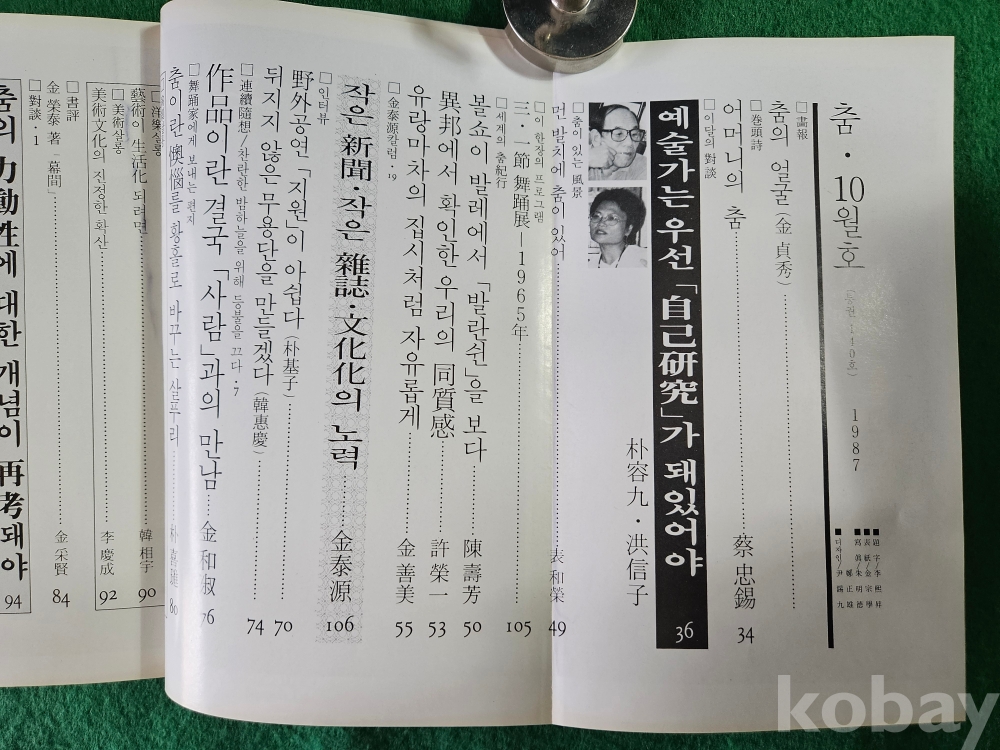 춤·10월호 (통권 140호) 1987
題字/李熙昇
表紙/金宗學
寫眞/朱明德
鄭正雄
디자인/尹錫九
□畵報
춤의 얼굴(金貞秀)
□卷頭詩
어머니의 춤 蔡忠錫 34
□이달의 對談
예술가는 우선 「自己硏究」가 돼있어야 36
朴容九·洪信子
□춤이 있는 風景
먼 발치에 춤이 있어 表和榮 49
□이 한장의 프로그램
三·一節 舞踊展—1965年 105
□세계의 춤 紀行
볼쇼이 발레에서 「발란쉰」을 보다 陳壽芳 50
異邦에서 확인한 우리의 同質感 許榮一 53
유랑마차의 집시처럼 자유롭게 金善美 55
□金泰源칼럼·19
작은 新聞·작은 雜誌·文化化의 노력 金泰源 106
□인터뷰
野外공연 「지원」이 아쉽다(朴基子) 70
뒤지지 않은 무용단을 만들겠다(韓惠慶) 74
□連續隨想/찬란한 밤하늘을 위해 등불을 끄다·7
作品이란 결국 「사람」과의 만남 金和淑 76
□舞踊家에게 보내는 편지
춤이란 懊惱를 황홀로 바꾸는 살푸리 朴喜璡 80
□洋樂살롱
藝術이 生活化 되려면 韓相宇 90
□美術살롱
美術文化의 진정한 확산 李慶成 92
□書評
金榮泰 著 「幕間」 金采賢 84
□對談·1
춤의 力動性에 대한 개념이 再考돼야 94
kobay